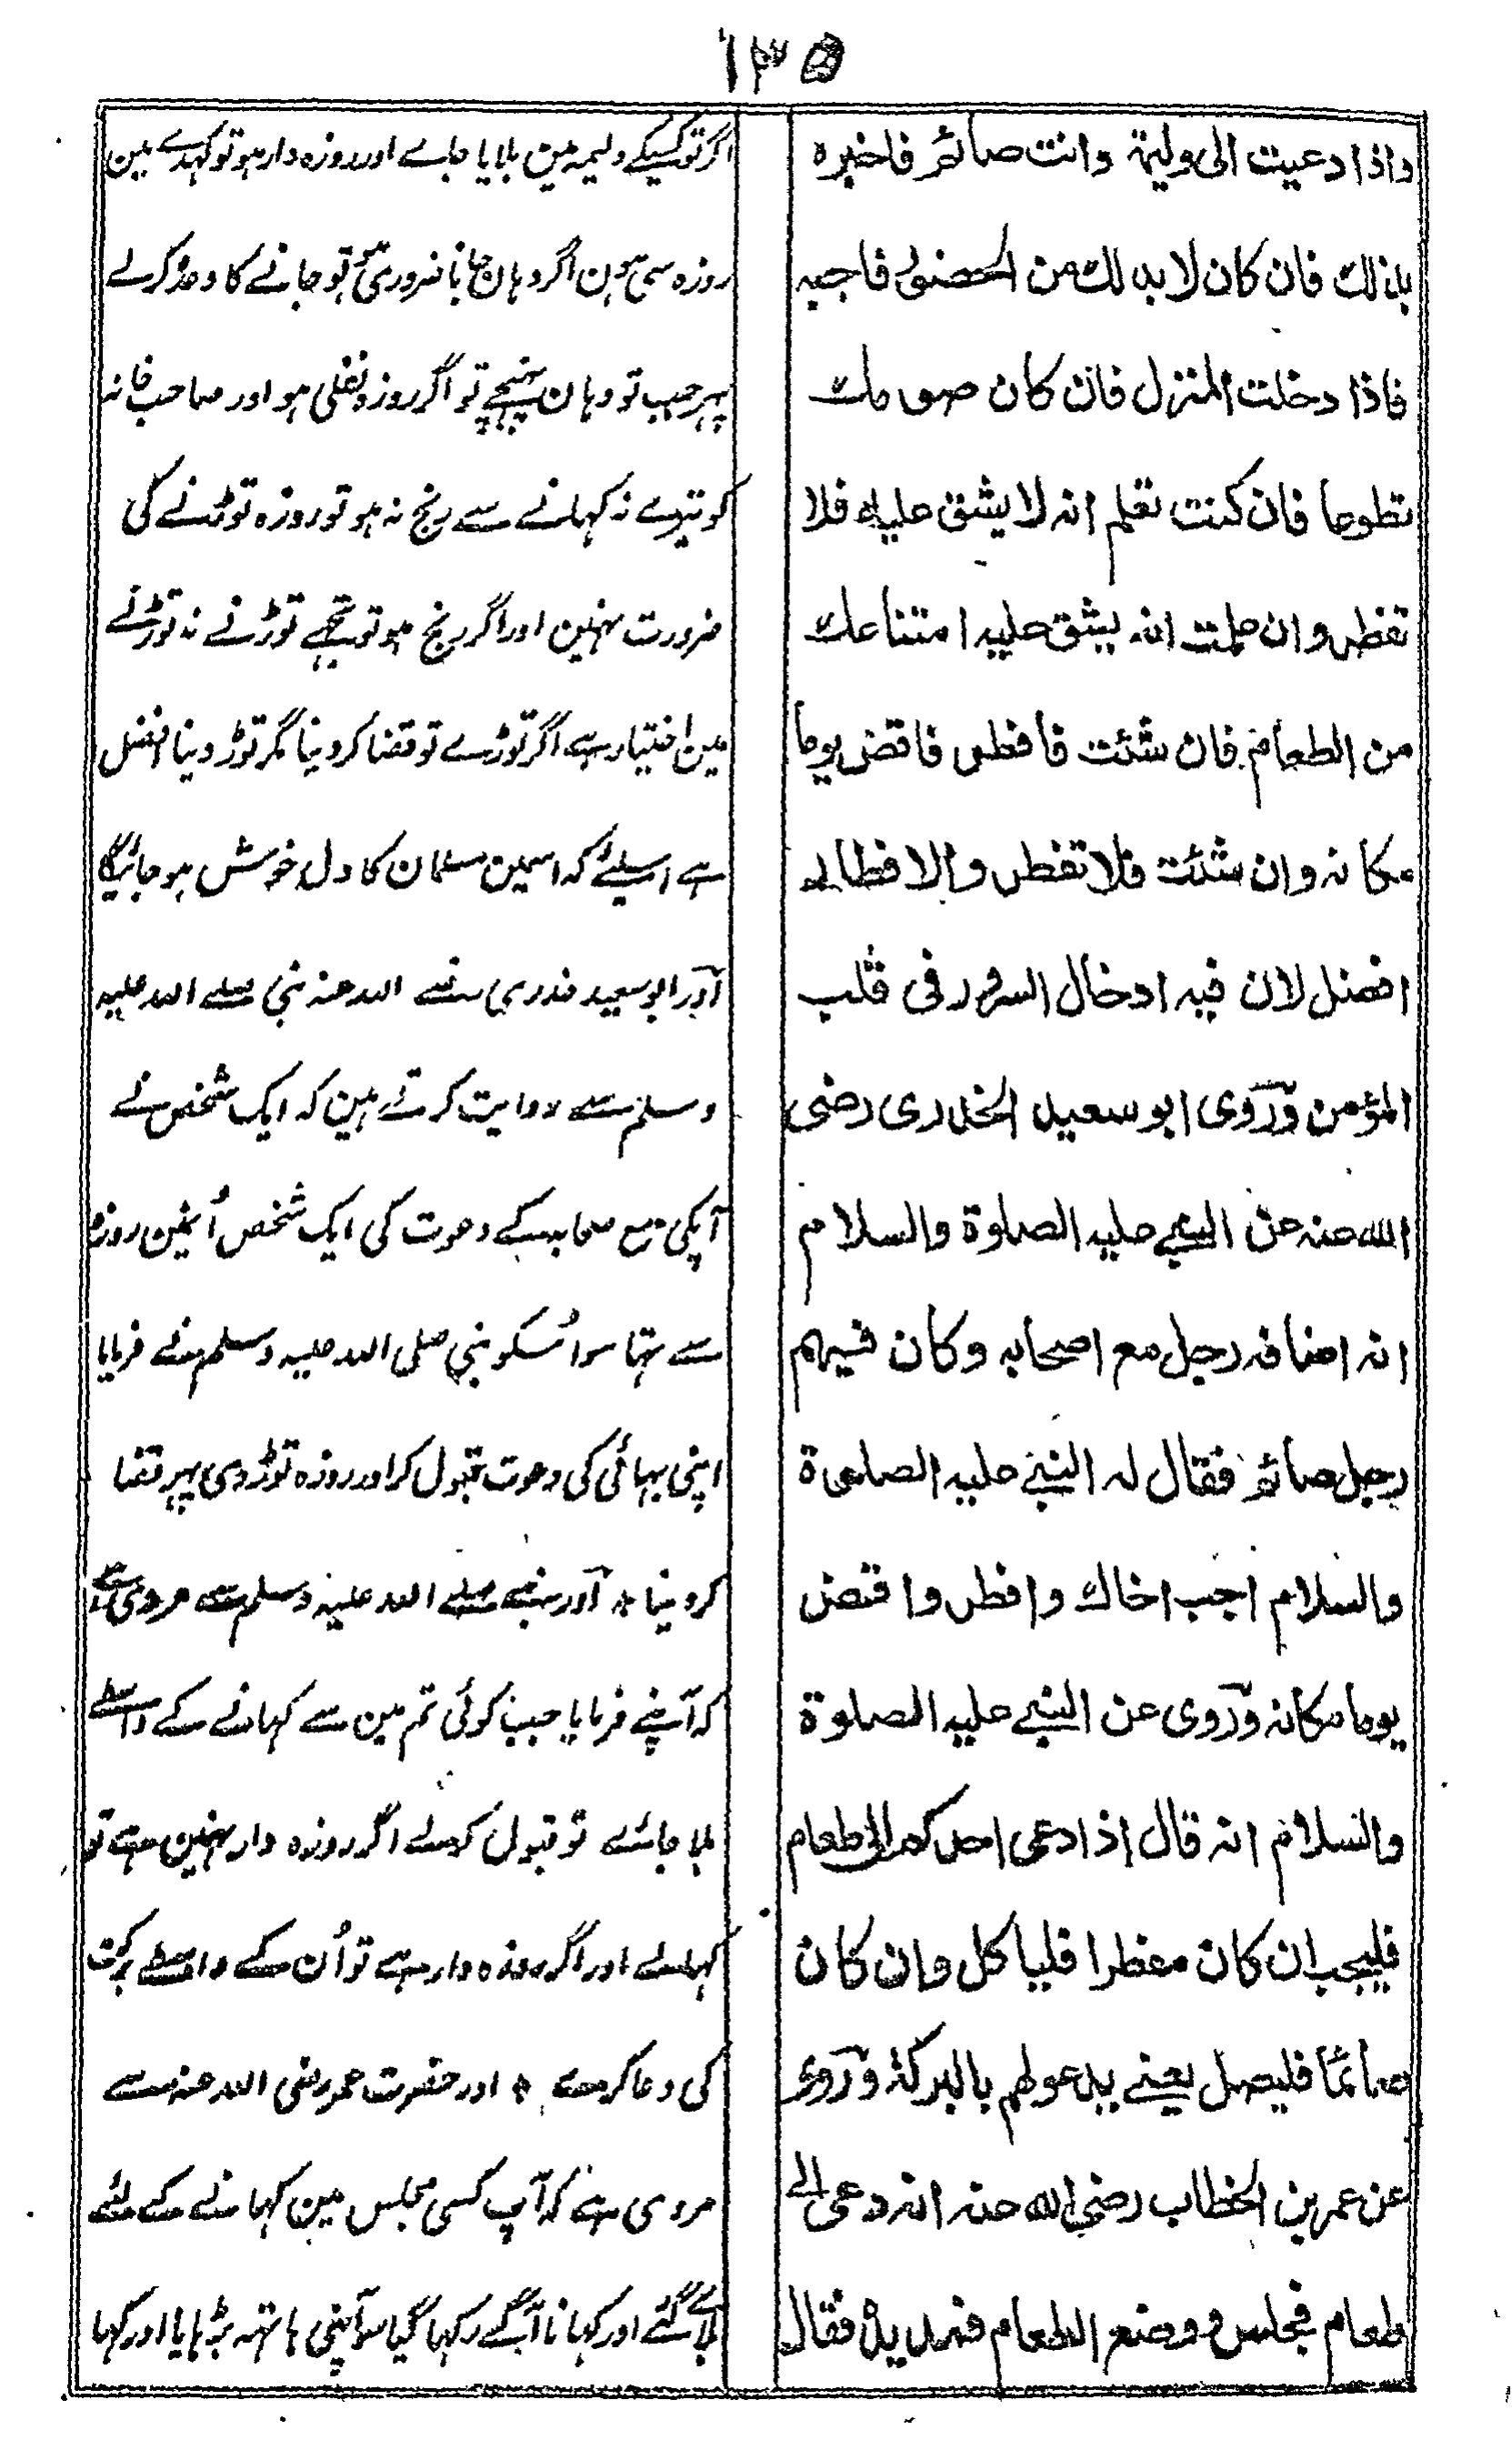 ١٣٥
واذا دعيت الى وليمة وانت صائم فاخبره
بذلك فان كان لا بد لك من الحضور فاجبه
فاذا دخلت المنزل فان كان صومك
تطوعا فان كنت تعلم انه لا يشق عليه فلا
تفطر وان علمت انه يشق عليه امتناعك
من الطعام فان شئت فافطر فاقض يوما
مكانه وان شئت فلا تفطر والافطار
افضل لان فيه ادخال السرور فى قلب
المؤمن وروى ابو سعيد الخدرى رضى
الله عنه عن النبي عليه الصلوة والسلام
انه اضافه رجل مع اصحابه وكان فيهم
رجل صائم فقال له النبي عليه الصلوة
والسلام اجب اخاك وافطر واقض
يوما مكانه وروى عن النبي عليه الصلوة
والسلام انه قال اذا دعى احدكم الى طعام
فليجب ان كان مفطرا فلياكل وان كان
صائما فليصل يعنے يدعو لهم بالبركة وروى
عن عمر بن الخطاب رضي الله عنه انه دعى الى
طعام فجلس ووضع الطعام فمد يده فقال
اگر تو کسیکے ولیمہ مین بلایا جاے اور روزہ دار ہو تو کہدے مین
روزہ سی ہون اگر وہان جانا ضروری ہو تو جانے کا وعدہ کرلے
پہر جب تو وہان پہنچے تو اگر روزہ نفلی ہو اور صاحب خانہ
کو تیرے نہ کہانے سے رنج نہ ہو تو روزہ توڑنے کی
ضرورت نہین اور اگر رنج ہو تو تجہے توڑنے نہ توڑنے
مین اختیار ہے اگر توڑے تو قضا کر دینا مگر توڑ دینا افضل
ہے اسلئے کہ اسمین مسلمان کا دل خوش ہو جائیگا
اور ابو سعید خدری رضے اللہ عنہ نبی صلے اللہ علیہ
وسلم سے روایت کرتے ہین کہ ایک شخص نے
آپکی مع صحابہ کے دعوت کی ایک شخص اُنمین روزہ
سے تہا سو اُسکو نبی صلی اللہ علیہ وسلم نے فرمایا
اپنی بہائی کی دعوت قبول کر اور روزہ توڑ دی پہر قضا
کر دینا * اور نبی صلے اللہ علیہ وسلم سے مروی ہے
کہ آپنے فرمایا جب کوئی تم مین سے کہانے کے واسطے
بلایا جائے تو قبول کرلے اگر روزہ دار نہین ہے تو
کہالے اور اگر روزہ دار ہے تو اُن کے واسطے برکت
کی دعا کردے * اور حضرت عمر رضی اللہ عنہ سے
مروی ہے کہ آپ کسی مجلس مین کہانے کے لئے
بلاے گئے اور کہانا آگے رکہا گیا سو آپنی ہاتہہ بڑہایا اور کہا